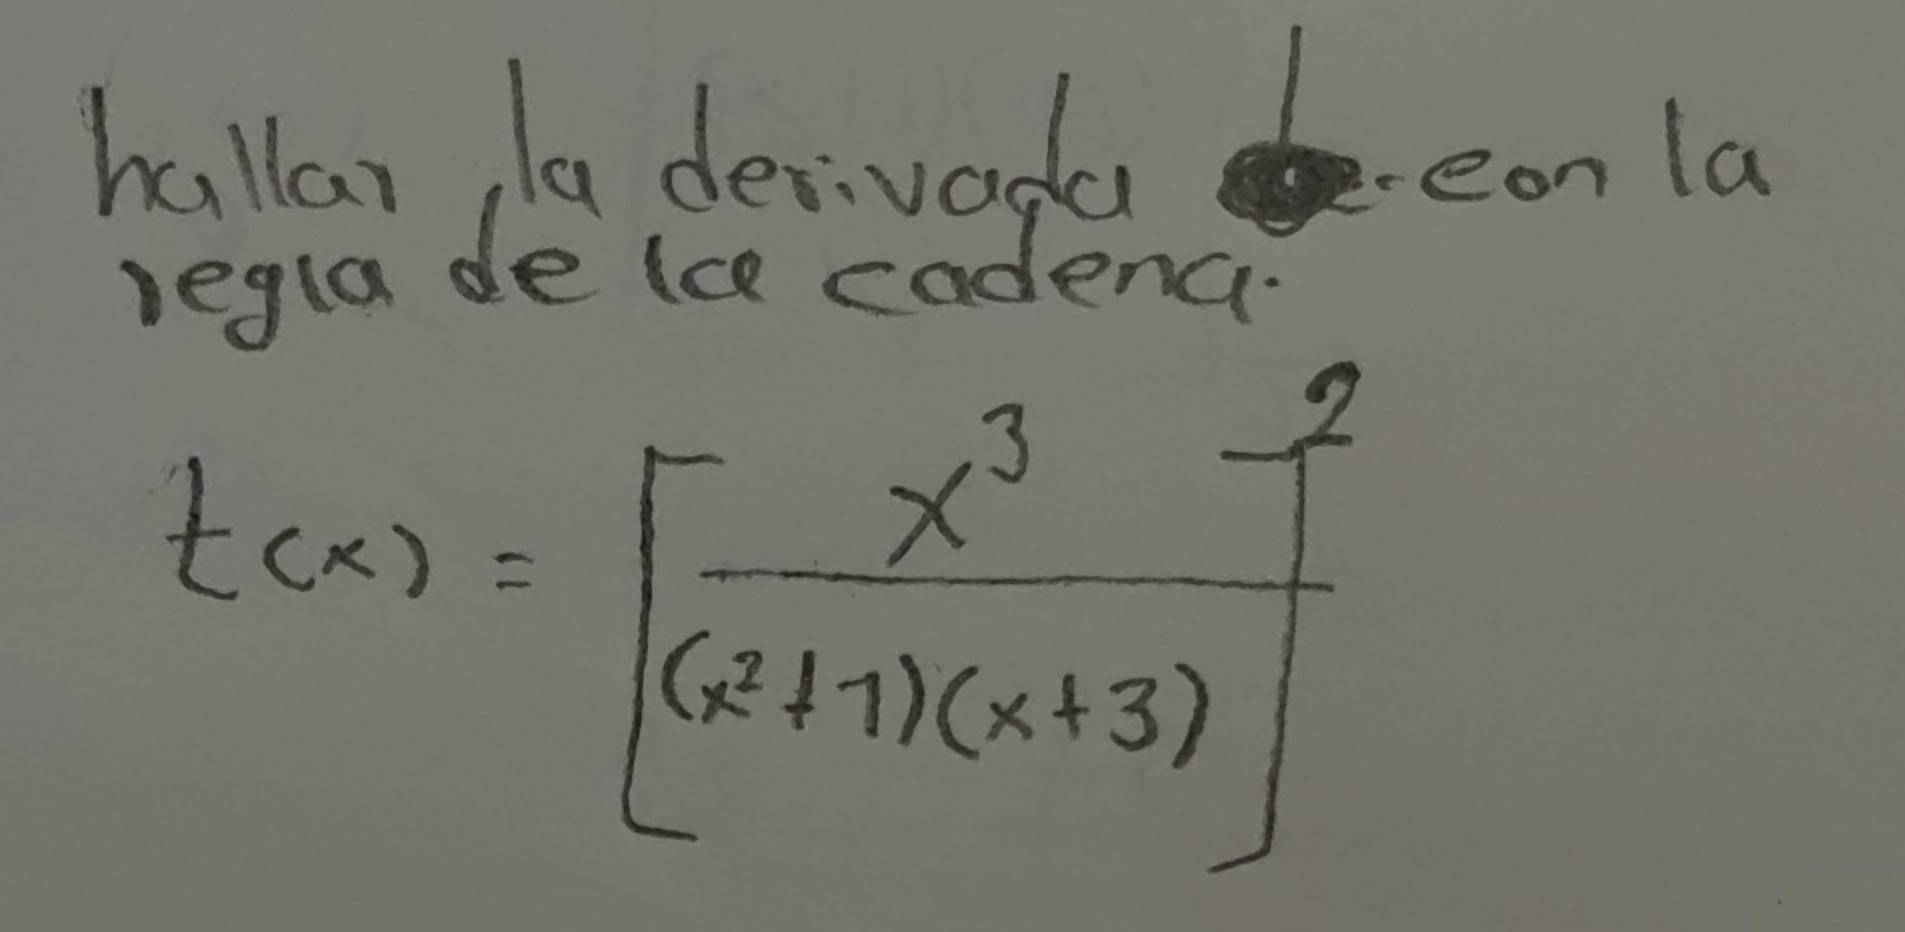 hallar la derivada con la
regla de la cadena.
t(x) = [x³ / (x²+1)(x+3)]²